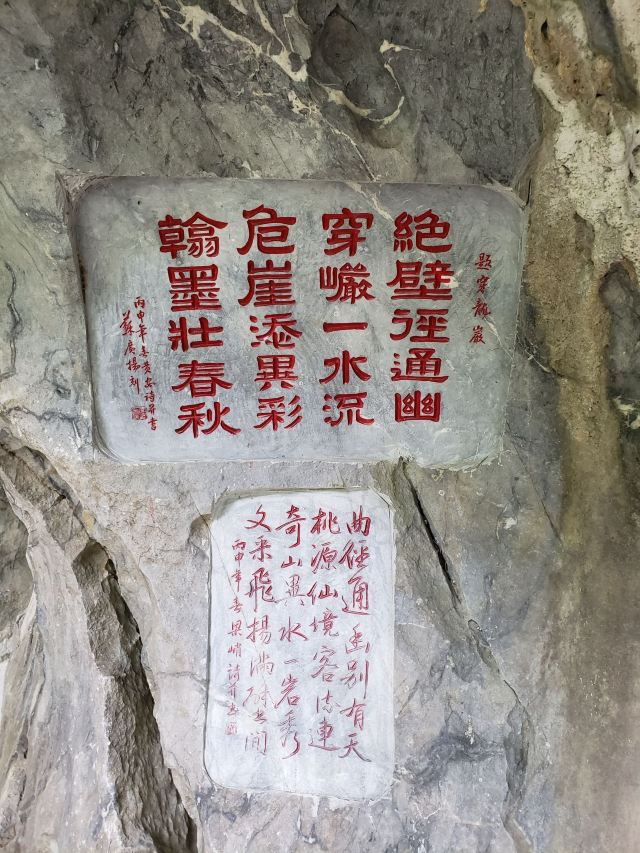 題穿龍巖
絕壁徑通幽
穿巗一水流
危崖添異彩
翰墨壯春秋
丙申年 詩并書
蘇廣揚刻
曲徑通幽别有天
桃源仙境客流連
奇山異水一岩秀
文采飛揚滿壁間
丙申年 梁峭詩并書